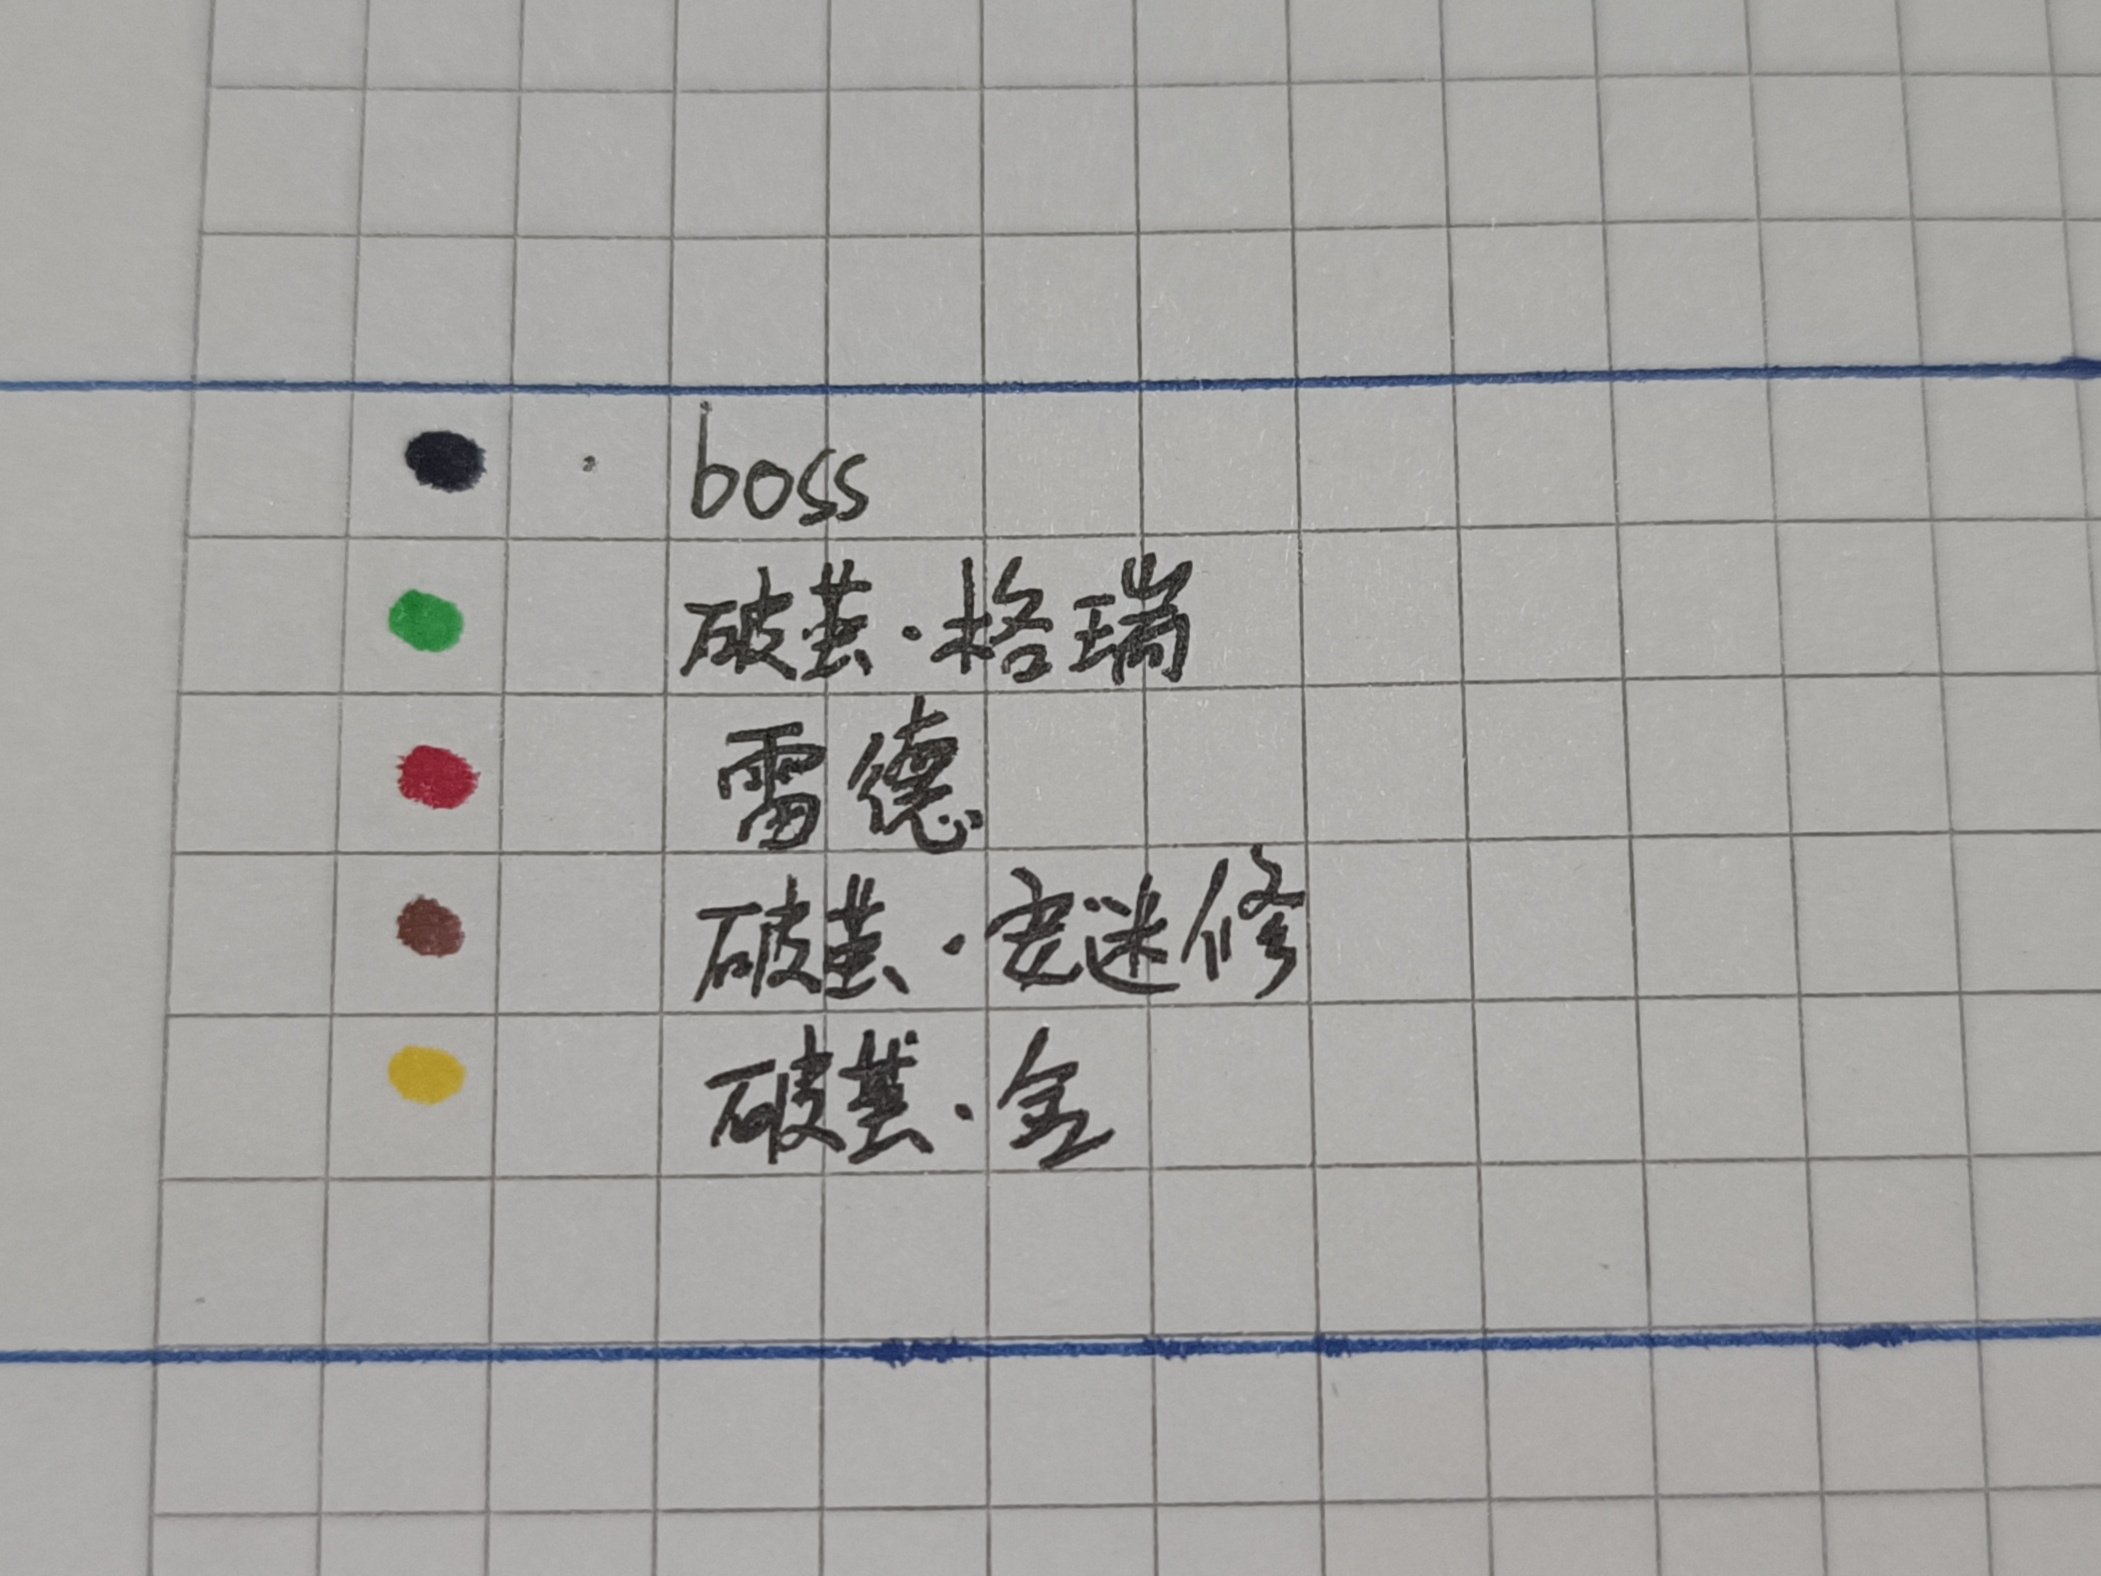 boss
破茧·格瑞
雷德
破茧·安迷修
破茧·金